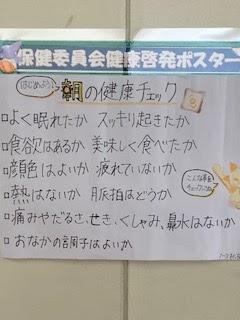 保健委員会健康啓発ポスター
はじめよう!
朝の健康チェック
□よく眠れたか スッキリ起きたか
□食欲はあるか 美味しく食べたか
□顔色はよいか 疲れていないか
□熱はないか 脈拍はどうか
□痛みやだるさ、せき、くしゃみ、鼻水はないか
□おなかの調子はよいか